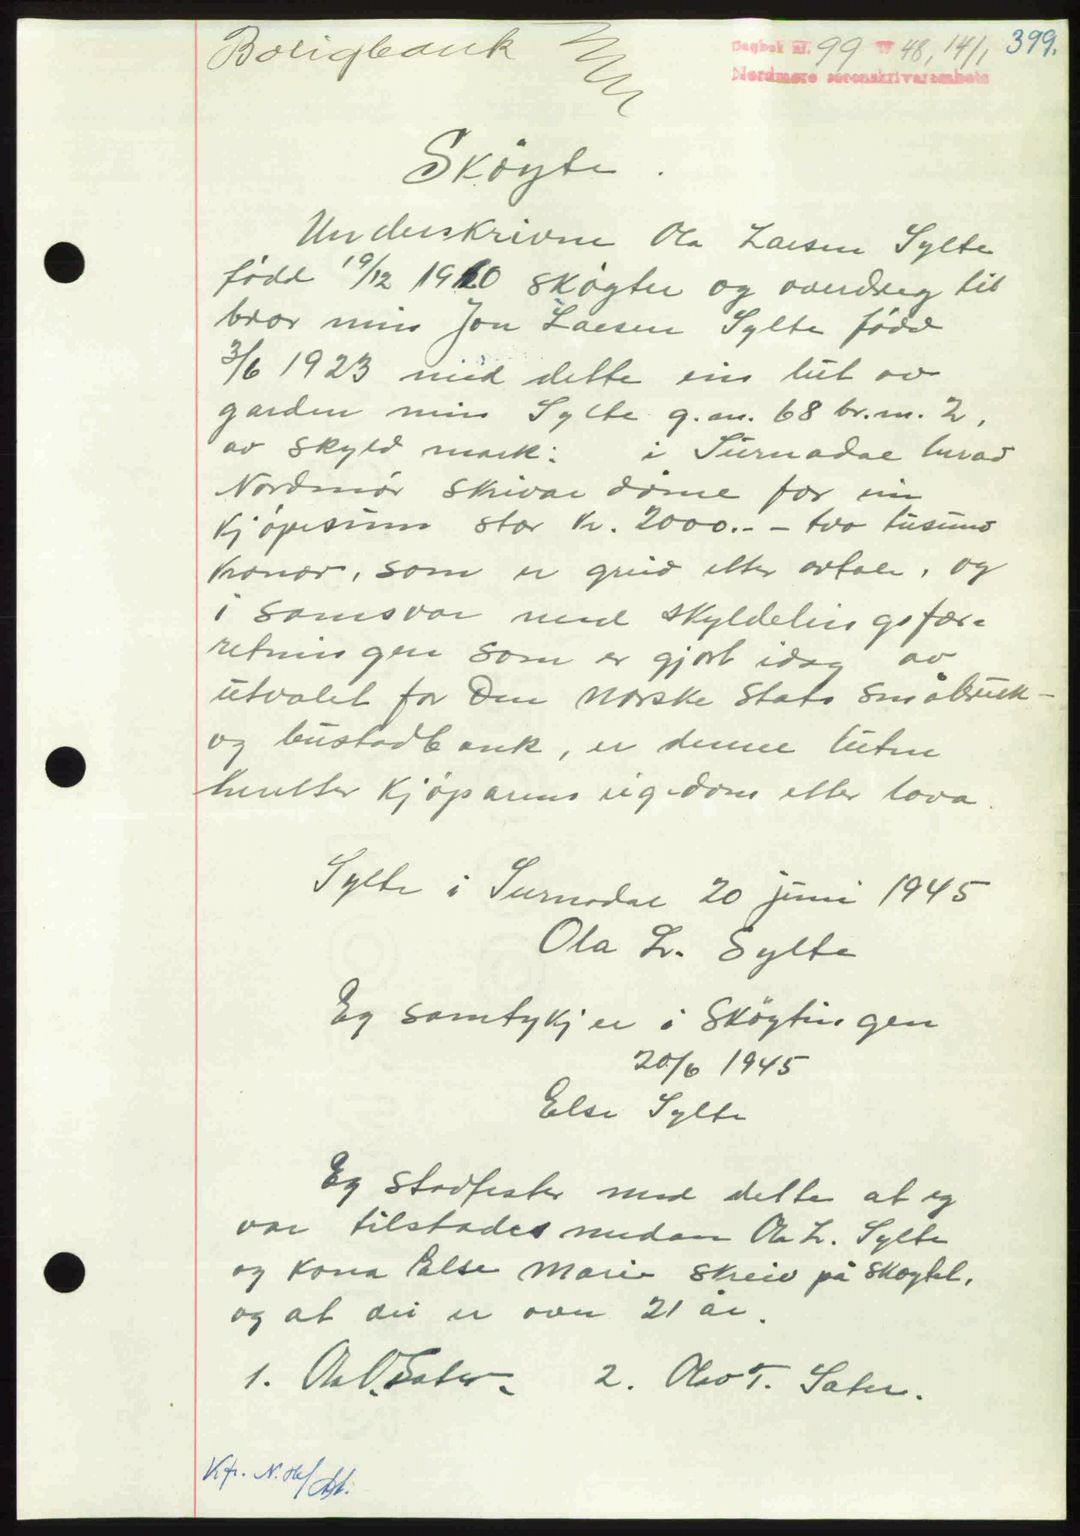 Boligbank
Dagbok nr. 99 19 48, 14/1 399.
Nordmøre sorenskrivarembete
Skøyte.
Underskrivne Ola Larsen Sylte
fødd 19/12 1910 skøyter og overdreg til
bror min Jon Larsen Sylte fødd
3/6 1923 med dette ein lut av
garden min Sylte g.nr. 68 br.nr. 2,
av skyld mark: i Surnadal herad
Nordmør skrivardøme for ein
kjøpesum stor kr. 2000.- - tvo tusund
kronor, som er greid etter avtale, og
i samsvar med skyldelingsfor-
retningen som er gjort idag av
utvalet for Den Norske Stats Småbruk-
og bustadbank, er denne luten
heretter kjøparens eigedom etter lova.
Sylte i Surnadal 20 juni 1945
Ola L. Sylte
Eg samtykjer i Skøytingen
20/6 1945
Else Sylte
Eg stadfester med dette at eg
var tilstades medan Ola L. Sylte
og kona Else Marie skreiv på skøytet,
og at dei er over 21 år.
1. Ola O. Sæter. 2. Olav T. Sæter.
Kfr. N. Hf/